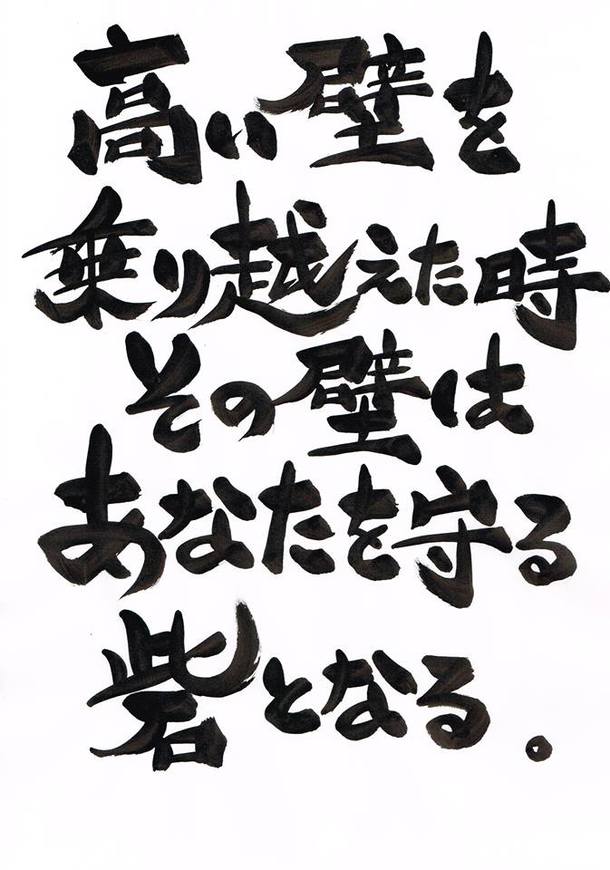 高い壁を
乗り越えた時
その壁は
あなたを守る
砦となる。